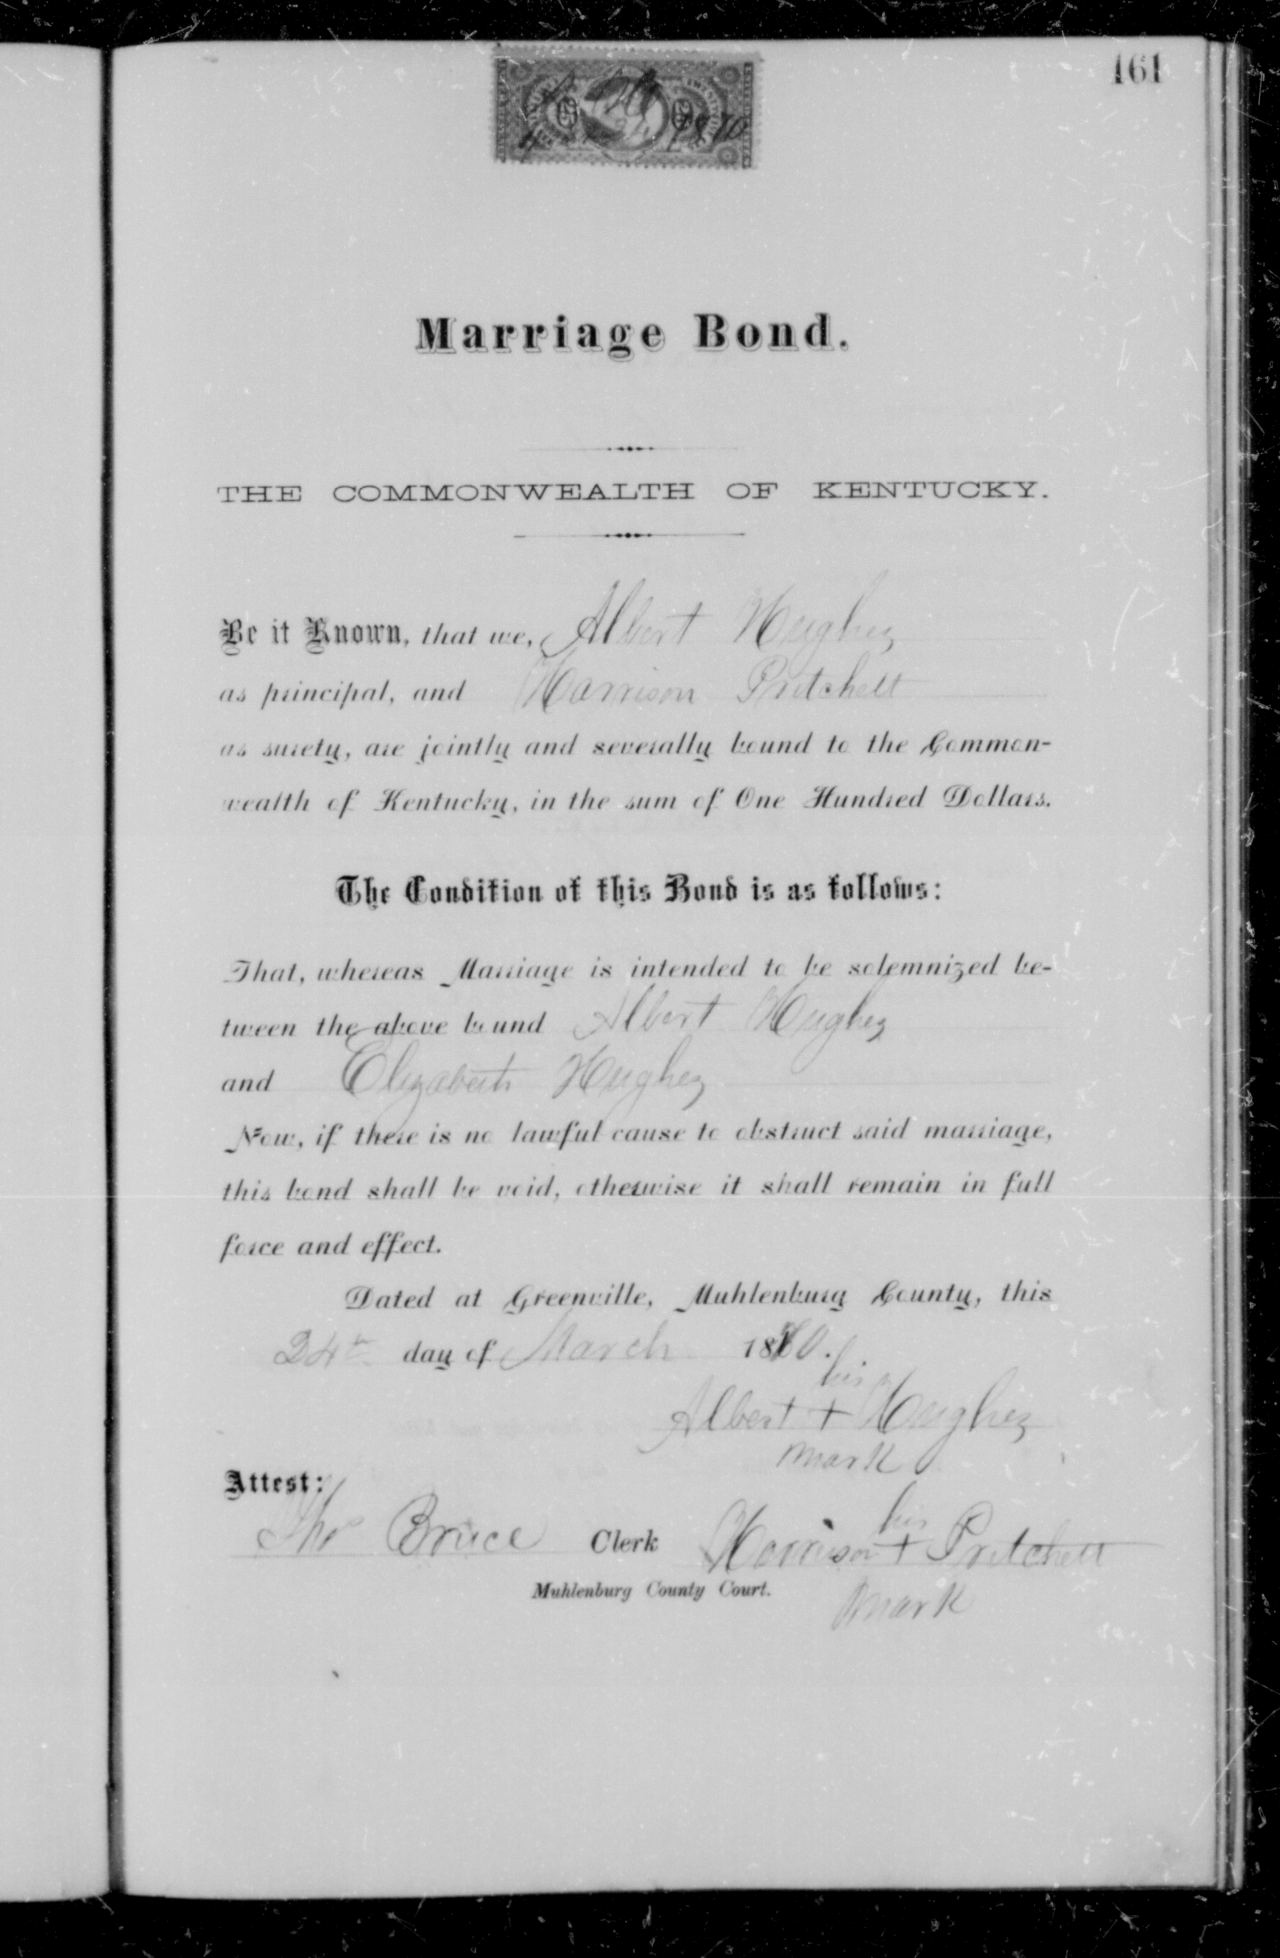 161
1870
Marriage Bond.
THE COMMONWEALTH OF KENTUCKY.
Be it Known, that we, Albert Hughes
as principal, and Harrison Pritchett
as surety, are jointly and severally bound to the Common-
wealth of Kentucky, in the sum of One Hundred Dollars.
The Condition of this Bond is as follows:
That, whereas Marriage is intended to be solemnized be-
tween the above bound Albert Hughes
and Elizabeth Hughes
Now, if there is no lawful cause to obstruct said marriage,
this bond shall be void, otherwise it shall remain in full
force and effect.
Dated at Greenville, Muhlenburg County, this
24th day of March 1870.
his
Albert + Hughes
mark
Attest:
his
Tho Bruce Clerk Harrison + Pritchett
Muhlenburg County Court.
mark